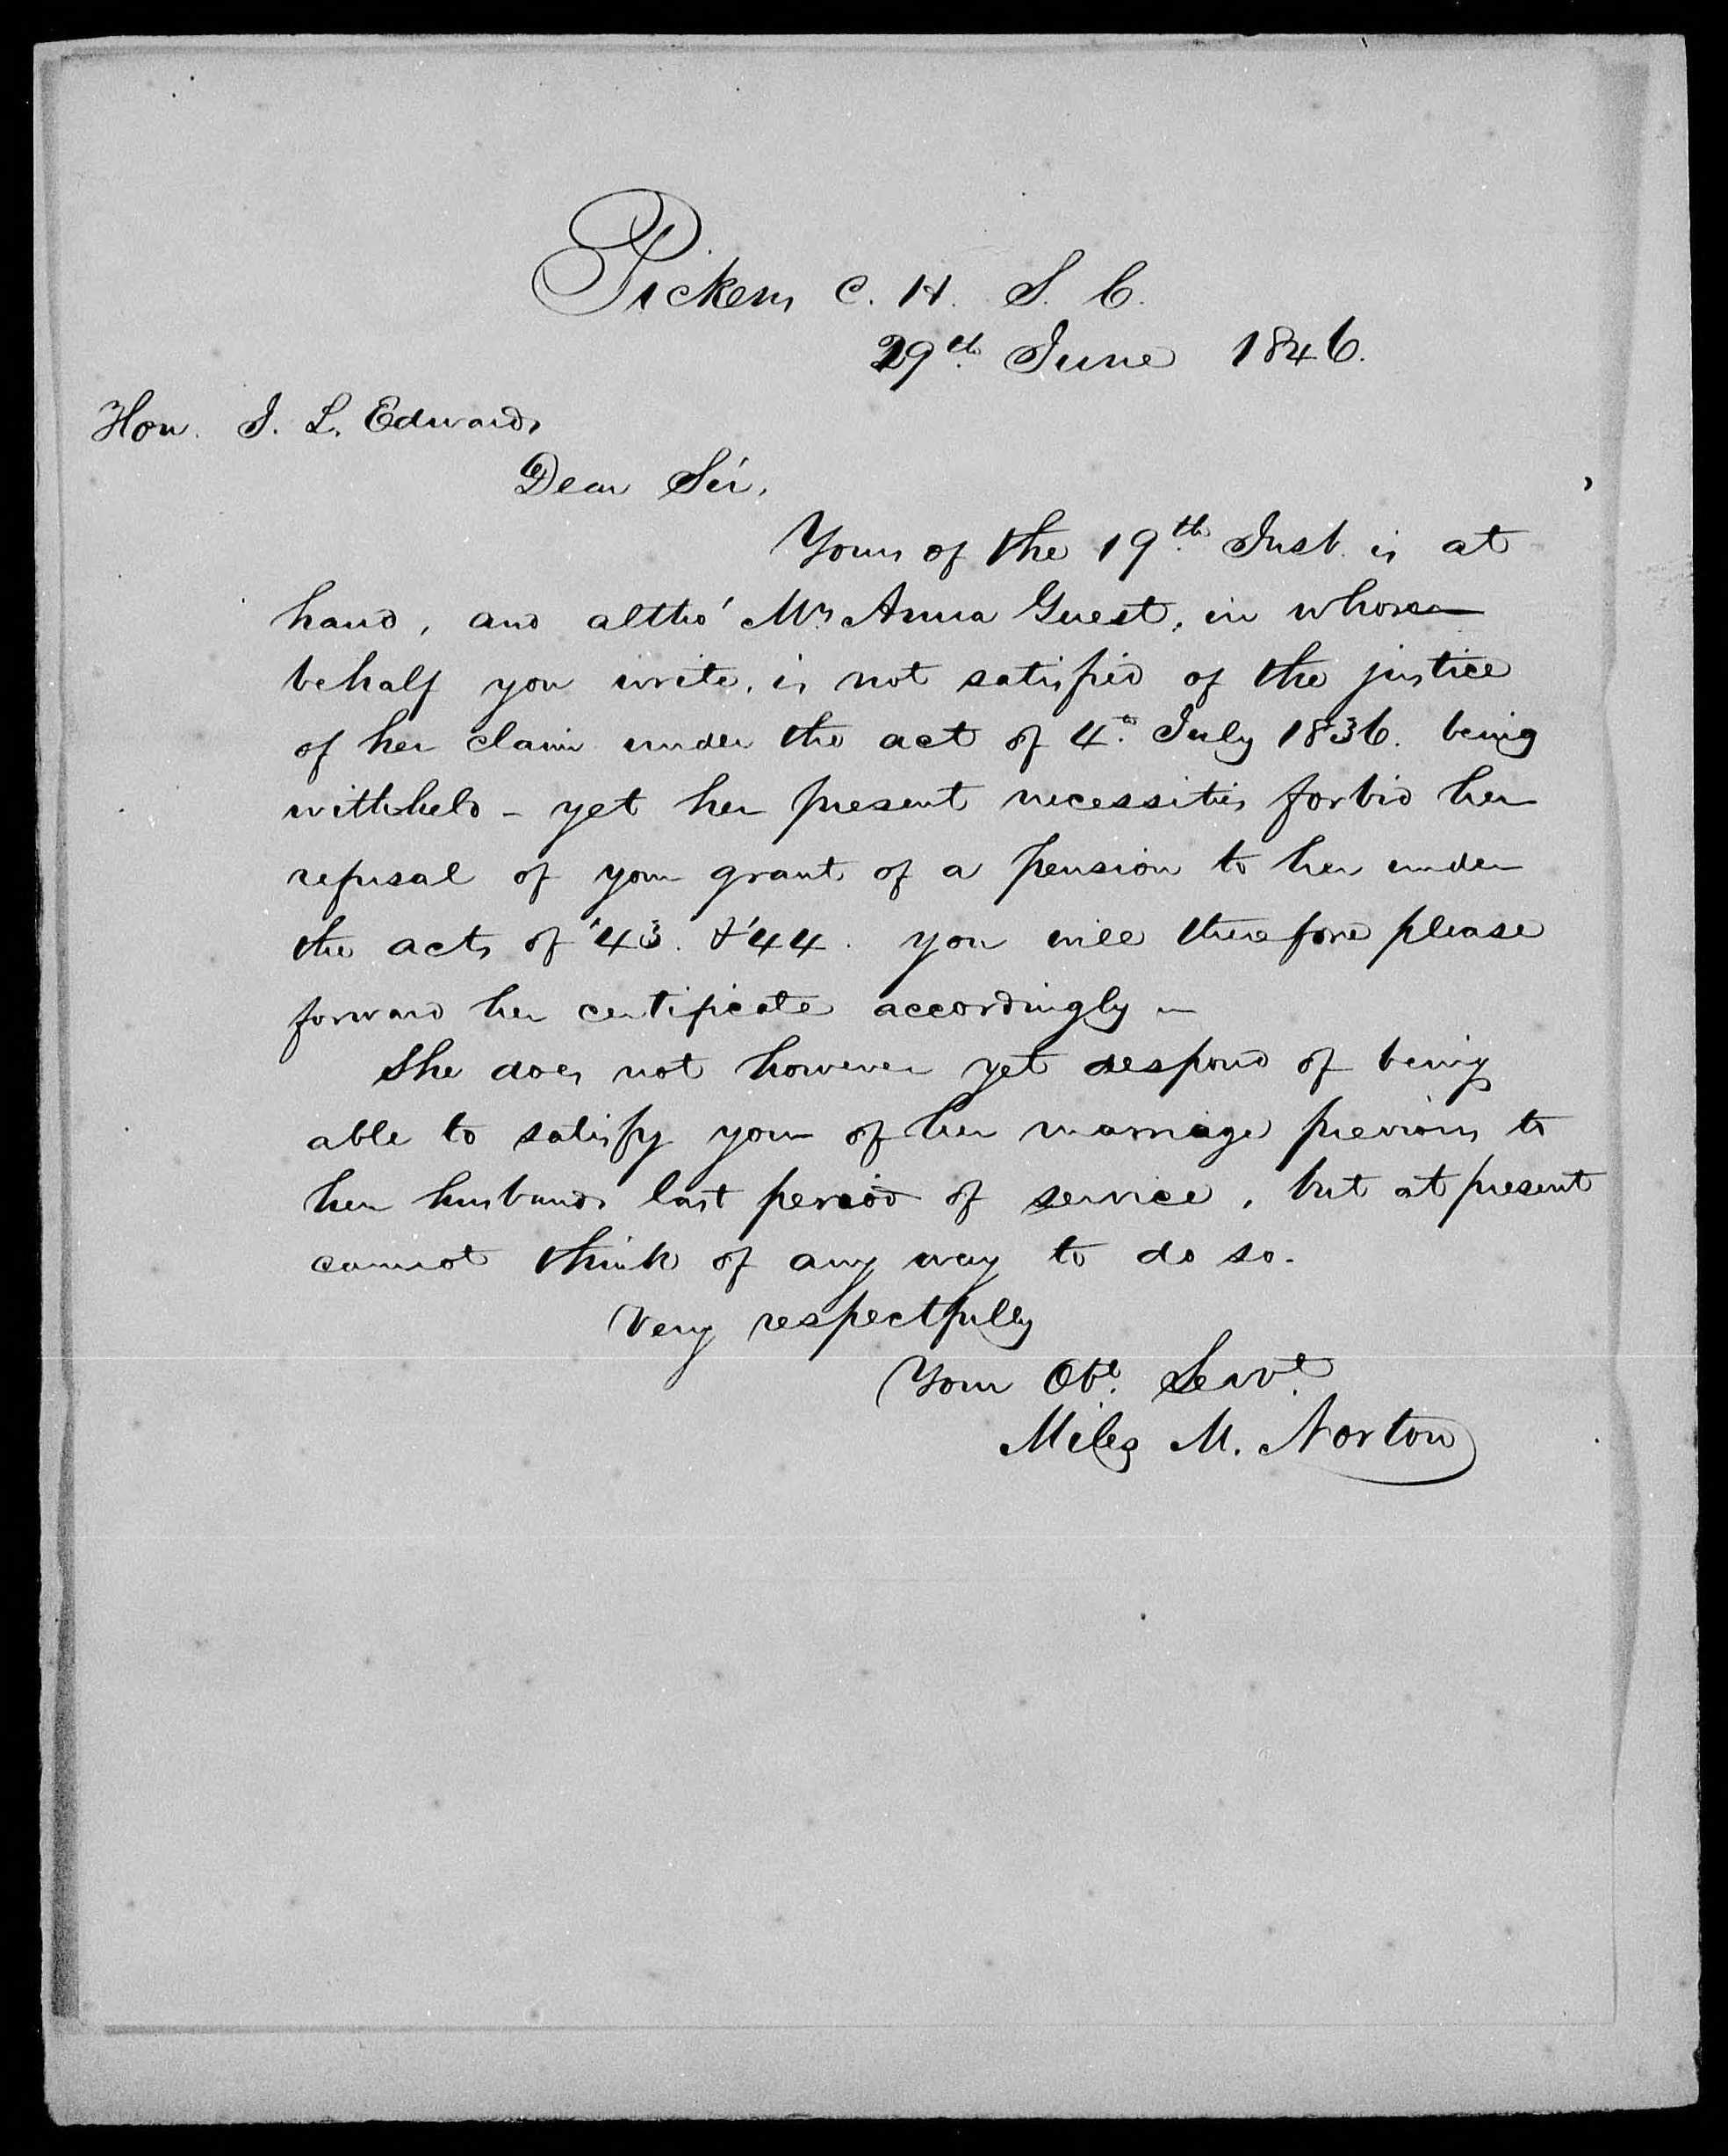 Pickens C. H. S. C.
29th June 1846.
Hon. J. L. Edwards
Dear Sir,
Yours of the 19th Inst. is at
hand, and altho' Mrs Anna Guest, in whose
behalf you write, is not satisfied of the justice
of her claim under the act of 4th July 1836. being
withheld - yet her present necessities forbid her
refusal of your grant of a pension to her under
the acts of '43. & '44. you will therefore please
forward her certificate accordingly -
She does not however yet despond of being
able to satisfy you of her marriage previous to
her husbands last period of service, but at present
cannot think of any way to do so.
Very respectfully
Your Obt. Servt.
Miles M. Norton